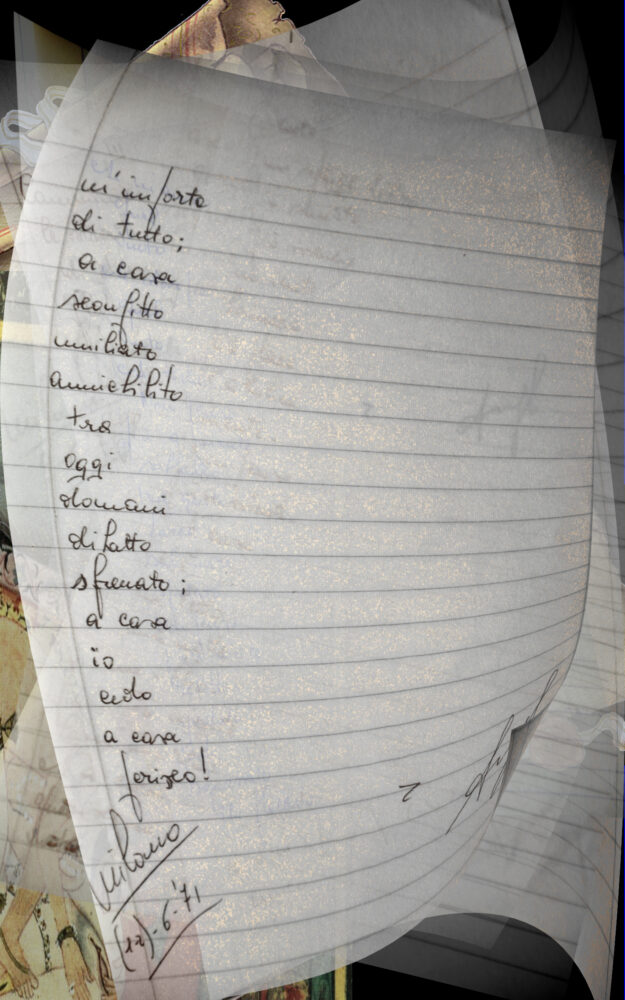 m'importa
di tutto;
a casa
sconfitto
umiliato
annichilito
tra
oggi
domani
disfatto
sfrenato;
a casa
io
cedo
a casa
Milano
(12).6.'71